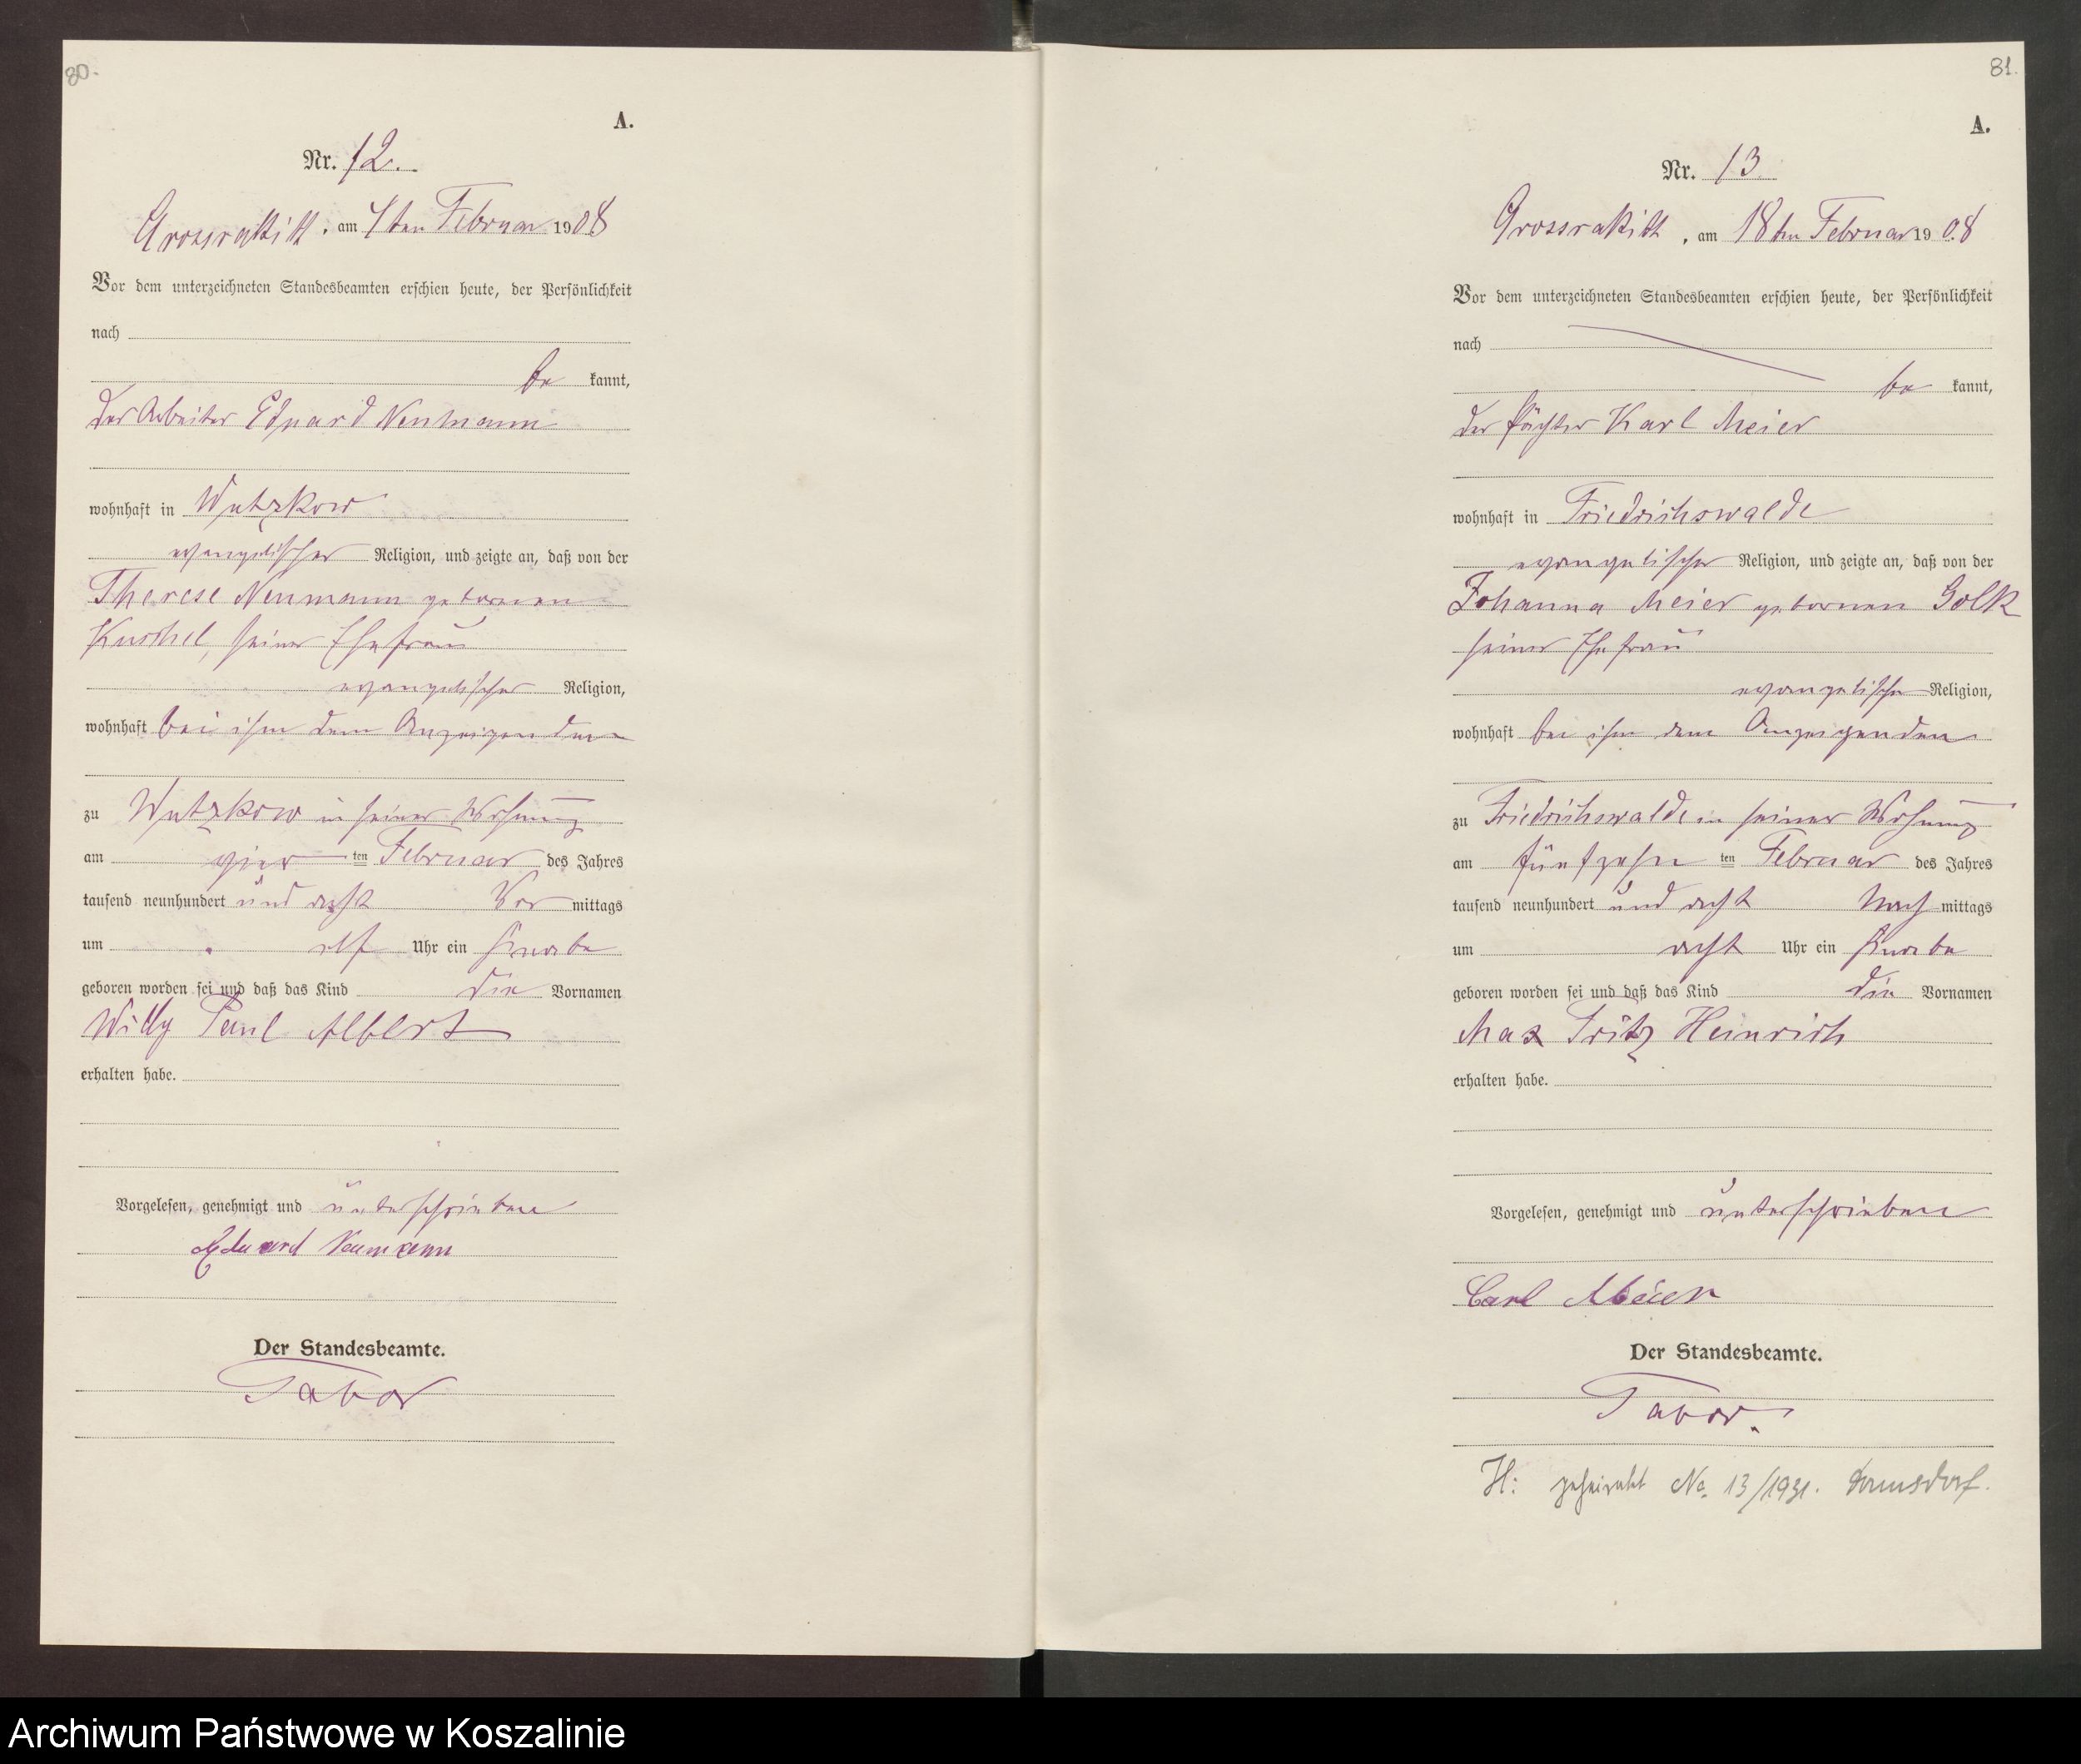 80.
A.
Nr. 12.
Grossrakitt, am 7ten Februar 1908
Vor dem unterzeichneten Standesbeamten erschien heute, der Persönlichkeit
nach
be kannt,
der Arbeiter Eduard Neumann
wohnhaft in Wutzkow
evangelischer Religion, und zeigte an, daß von der
Therese Neumann geborenen
Kuschel, seiner Ehefrau
evangelischer Religion,
wohnhaft bei ihm dem Anzeigenden
zu Wutzkow in seiner Wohnung
am vier ten Februar des Jahres
tausend neunhundert und acht Vor mittags
um elf Uhr ein Knabe
geboren worden sei und daß das Kind die Vornamen
Willy Paul Albert
erhalten habe.
Vorgelesen, genehmigt und unterschrieben
Eduard Neumann
Der Standesbeamte.
Tabor
81.
A.
Nr. 13.
Grossrakitt, am 18ten Februar 1908
Vor dem unterzeichneten Standesbeamten erschien heute, der Persönlichkeit
nach
be kannt,
der Pächter Karl Meier
wohnhaft in Friedrichswalde
evangelischer Religion, und zeigte an, daß von der
Johanna Meier geborenen Golk
seiner Ehefrau
evangelischer Religion,
wohnhaft bei ihm dem Anzeigenden
zu Friedrichswalde in seiner Wohnung
am fünfzehn ten Februar des Jahres
tausend neunhundert und acht Nach mittags
um acht Uhr ein Knabe
geboren worden sei und daß das Kind die Vornamen
Max Fritz Heinrich
erhalten habe.
Vorgelesen, genehmigt und unterschrieben
Carl Meier
Der Standesbeamte.
Tabor.
H: geheiratet No. 13/1931.
Archiwum Państwowe w Koszalinie